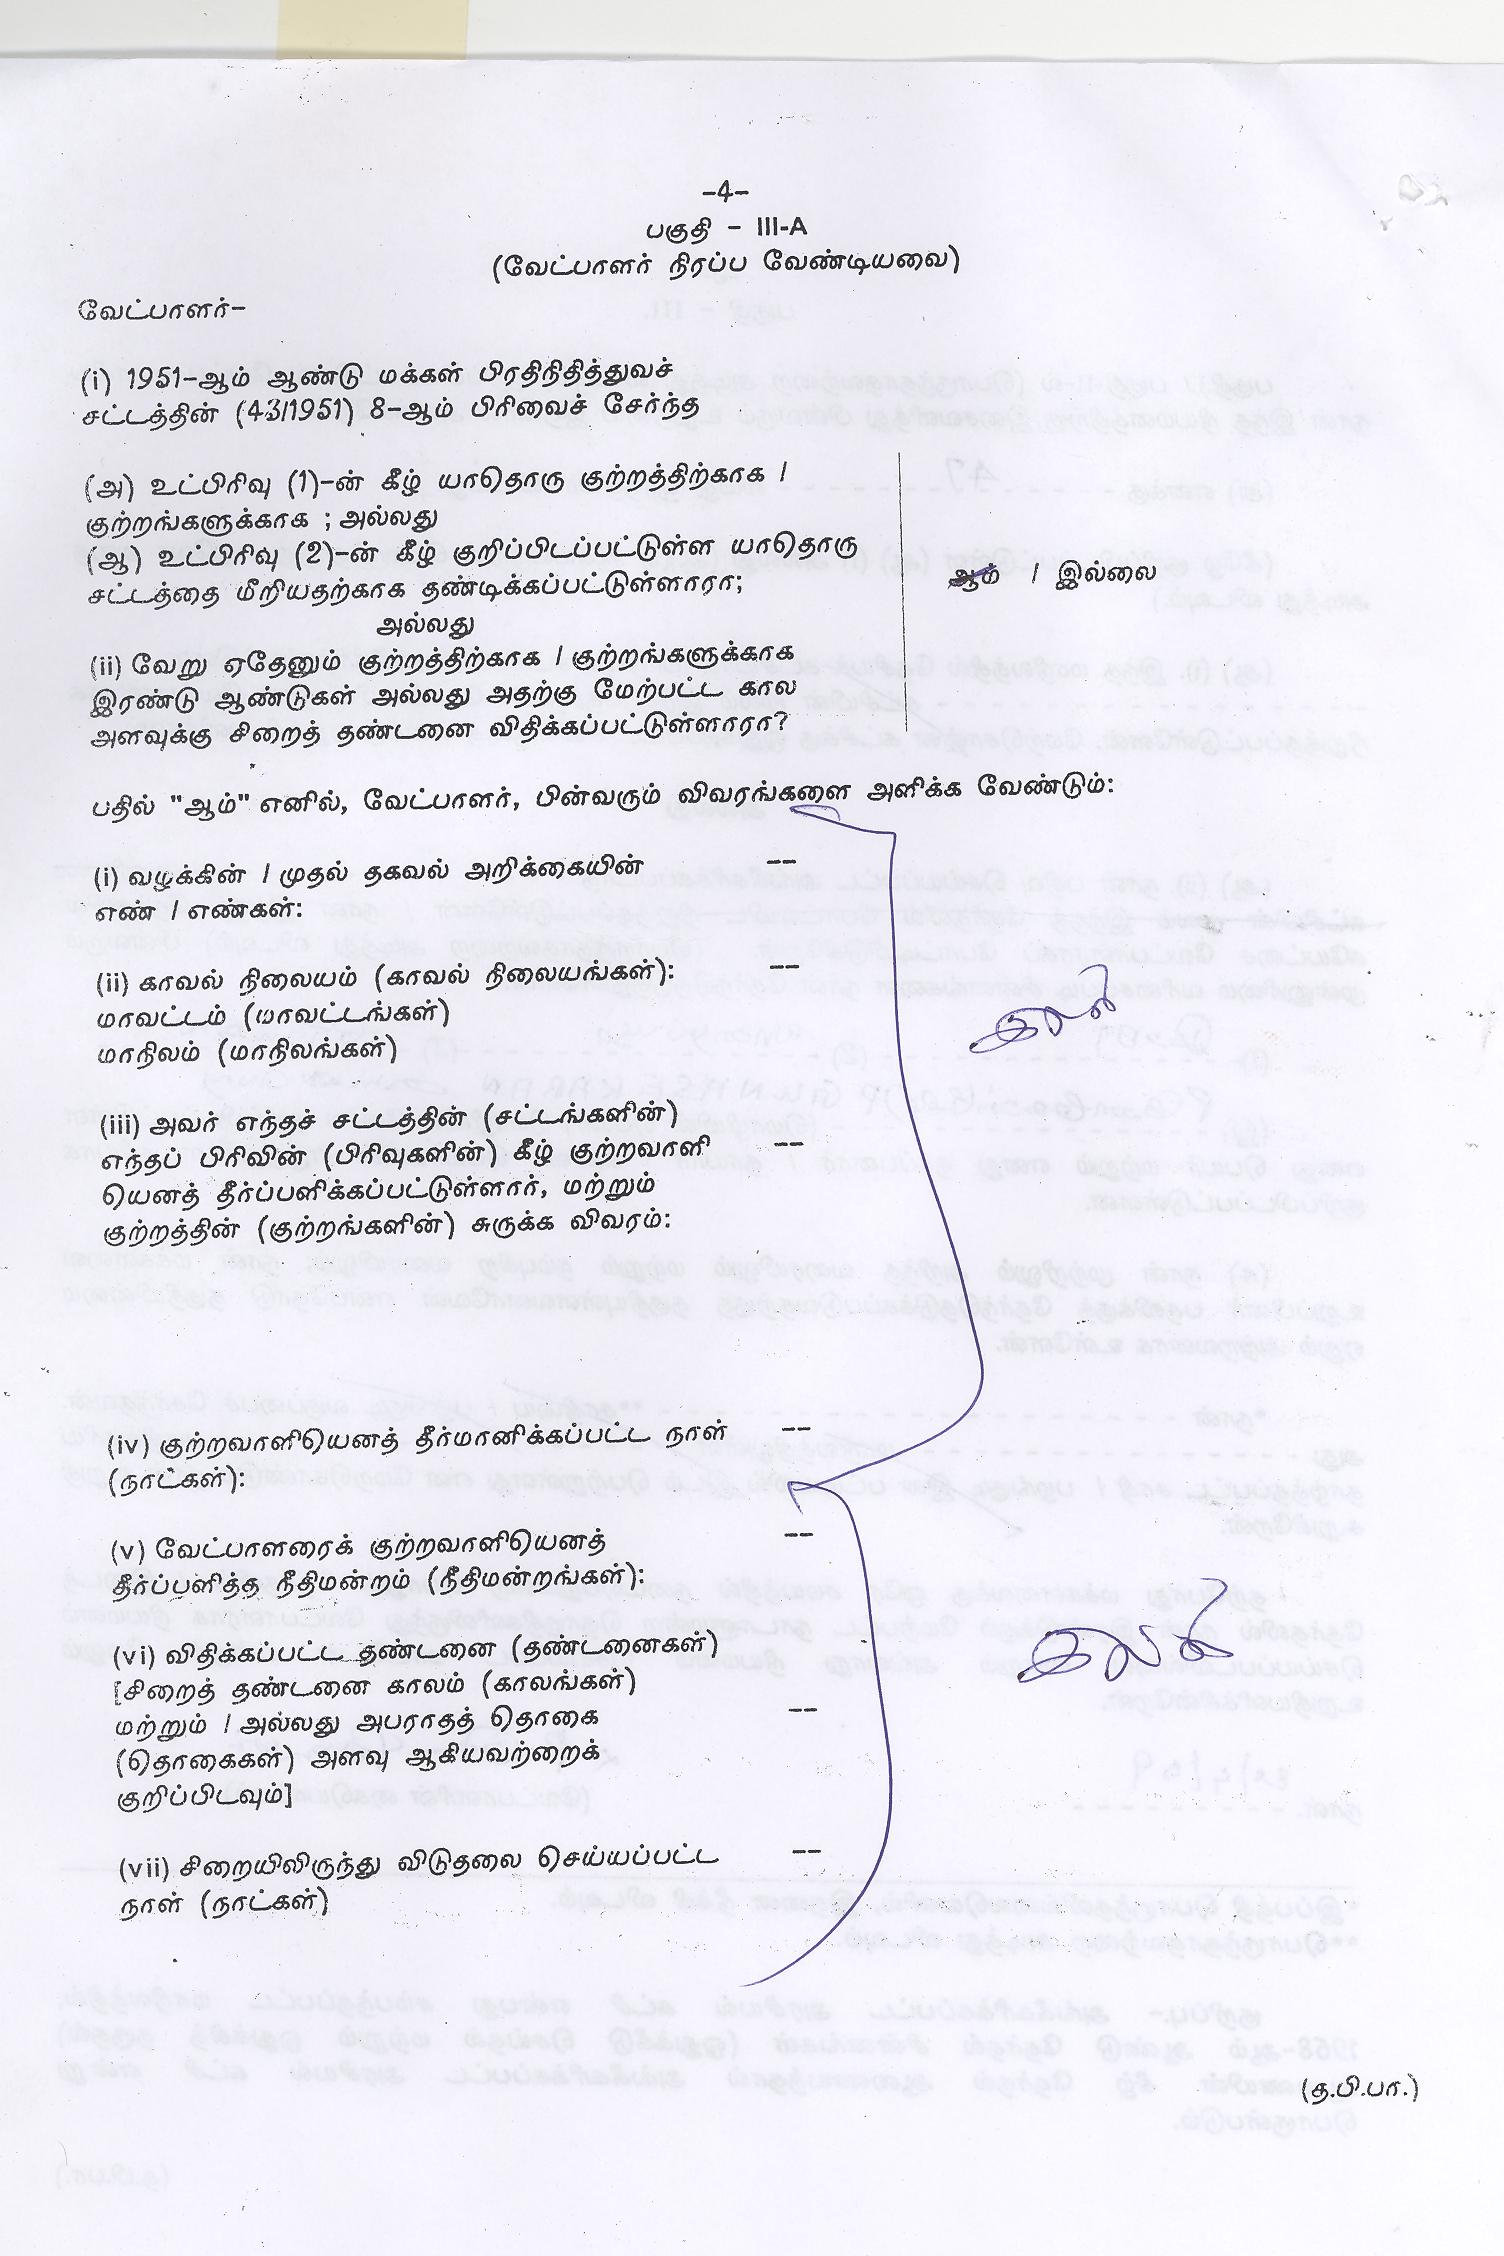 -4-
பகுதி - III-A
(வேட்பாளர் நிரப்ப வேண்டியவை)
வேட்பாளர்-
(i) 1951-ஆம் ஆண்டு மக்கள் பிரதிநிதித்துவச்
சட்டத்தின் (43/1951) 8-ஆம் பிரிவைச் சேர்ந்த
(அ) உட்பிரிவு (1)-ன் கீழ் யாதொரு குற்றத்திற்காக /
குற்றங்களுக்காக ; அல்லது
(ஆ) உட்பிரிவு (2)-ன் கீழ் குறிப்பிடப்பட்டுள்ள யாதொரு
சட்டத்தை மீறியதற்காக தண்டிக்கப்பட்டுள்ளாரா;
ஆம் / இல்லை
அல்லது
(ii) வேறு ஏதேனும் குற்றத்திற்காக / குற்றங்களுக்காக
இரண்டு ஆண்டுகள் அல்லது அதற்கு மேற்பட்ட கால
அளவுக்கு சிறைத் தண்டனை விதிக்கப்பட்டுள்ளாரா?
பதில் "ஆம்" எனில், வேட்பாளர், பின்வரும் விவரங்களை அளிக்க வேண்டும்:
(i) வழக்கின் / முதல் தகவல் அறிக்கையின் --
எண் / எண்கள்:
(ii) காவல் நிலையம் (காவல் நிலையங்கள்): --
மாவட்டம் (மாவட்டங்கள்)
மாநிலம் (மாநிலங்கள்)
(iii) அவர் எந்தச் சட்டத்தின் (சட்டங்களின்)
எந்தப் பிரிவின் (பிரிவுகளின்) கீழ் குற்றவாளி --
யெனத் தீர்ப்பளிக்கப்பட்டுள்ளார், மற்றும்
குற்றத்தின் (குற்றங்களின்) சுருக்க விவரம்:
(iv) குற்றவாளியெனத் தீர்மானிக்கப்பட்ட நாள் --
(நாட்கள்):
(v) வேட்பாளரைக் குற்றவாளியெனத் --
தீர்ப்பளித்த நீதிமன்றம் (நீதிமன்றங்கள்):
(vi) விதிக்கப்பட்ட தண்டனை (தண்டனைகள்)
[சிறைத் தண்டனை காலம் (காலங்கள்)
மற்றும் / அல்லது அபராதத் தொகை --
(தொகைகள்) அளவு ஆகியவற்றைக்
குறிப்பிடவும்]
(vii) சிறையிலிருந்து விடுதலை செய்யப்பட்ட --
நாள் (நாட்கள்)
(த.பி.பா.)